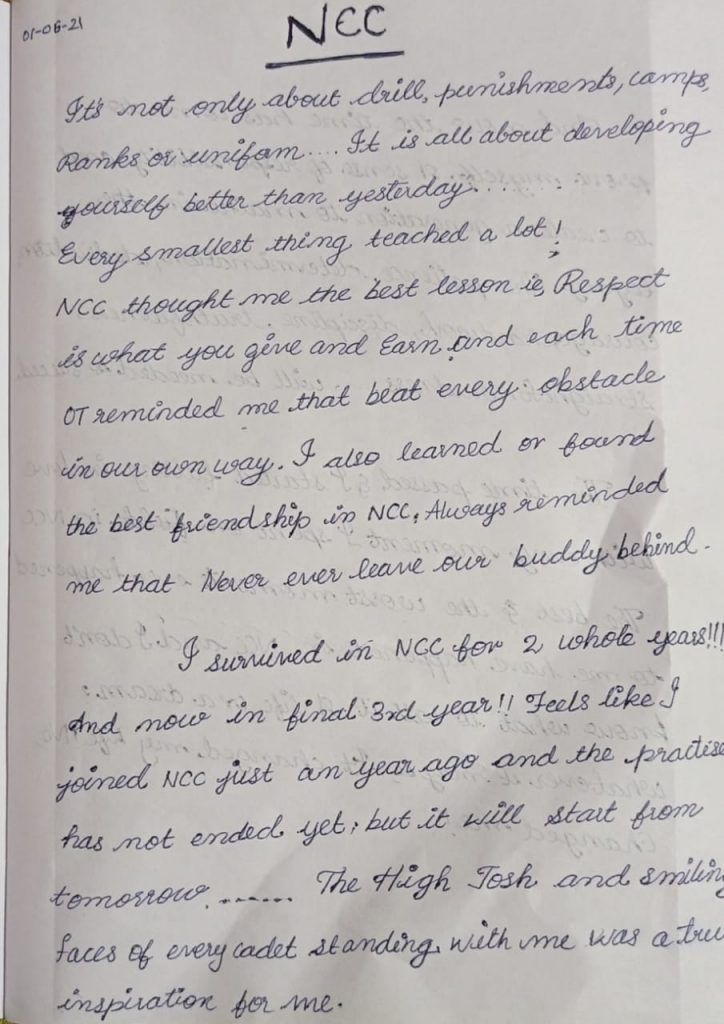 01-06-21
NCC
It's not only about drill, punishments, camps,
Ranks or unifom.... It is all about developing
yourself better than yesterday.......
Every smallest thing teached a lot!
NCC thought me the best lesson ie, Respect
is what you give and Earn and each time
OT reminded me that beat every obstacle
in our own way. I also learned or found
the best friendship in NCC, Always reminded
me that Never ever leave our buddy behind.
I survived in NCC for 2 whole years!!!
And now in final 3rd year!! Feels like I
joined NCC just an year ago and the practise
has not ended yet; but it will start from
tomorrow....... The High Josh and smiling
faces of every cadet standing with me was a true
inspiration for me.